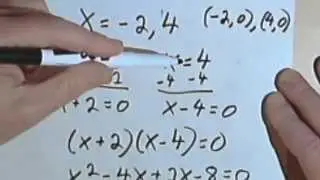 x = -2, 4 (-2,0), (4,0)
= 4
2 -4 -4
x+2=0 x-4=0
(x+2)(x-4)=0
x²-4x+2x-8=0